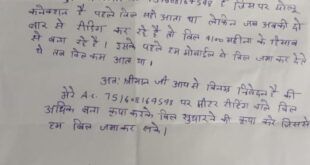 कनेक्शन है पहले बिल सही आता था लेकिन जब अबकी दो
बार से रीडिंग कर रहे है तो बिल 4100 महीना के हिसाब
से बना रहे है। इसके पहले हम मोबाईल से बिल जमा कर देते
थे तब बिल कम आता था।
अतः श्रीमान जी आप से विनम्र निवेदन है की
मेरे A.C. 751608169598 पर मीटर रीडिंग वाले बिल
अधिक बना कृपा करके बिल सुधारने की कृपा करे जिससे
हम बिल जमा कर सके।